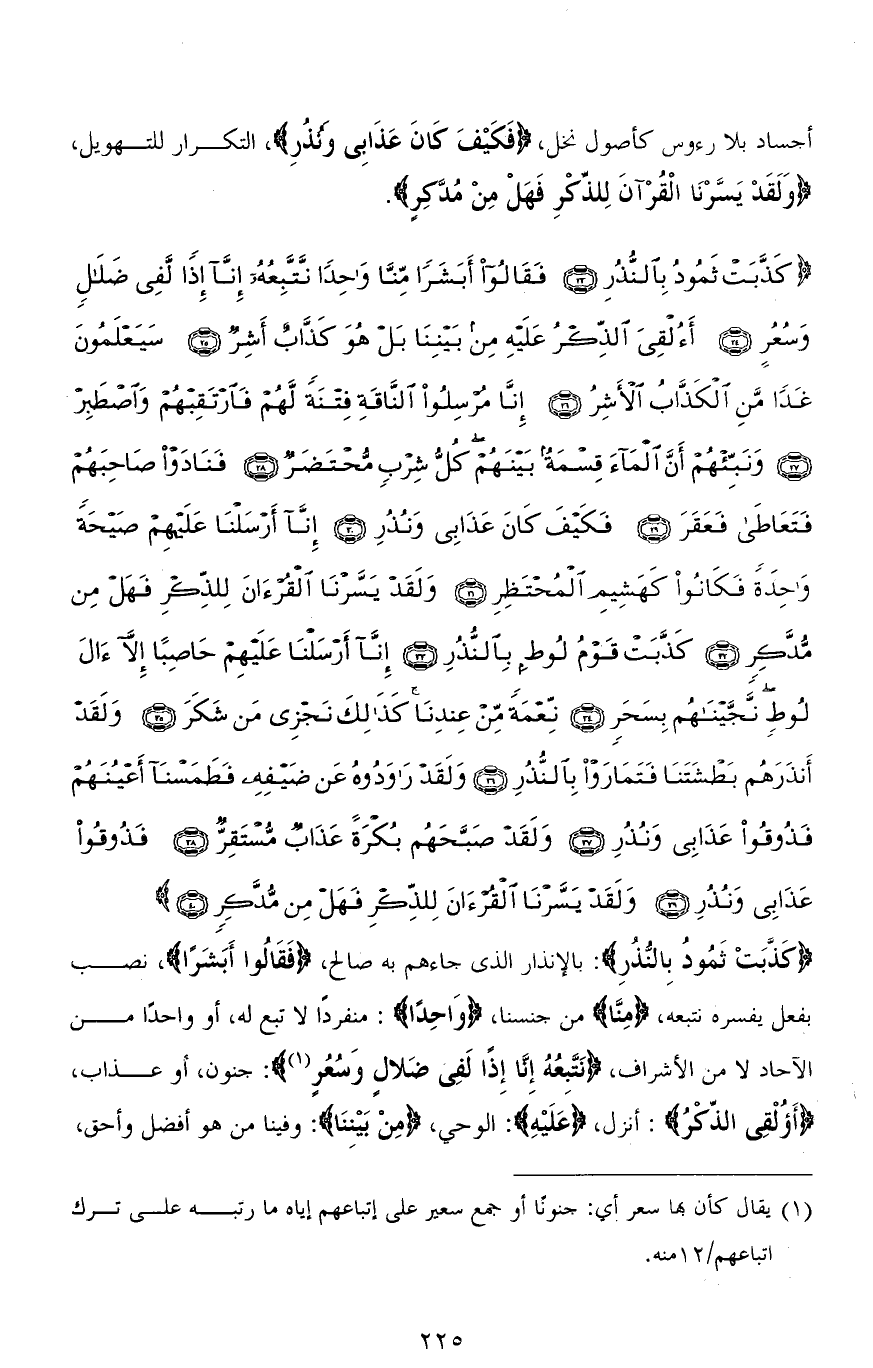 أجساد بلا رءوس كأصول نخل، ﴿فَكَيْفَ كَانَ عَذَابِى وَنُذُرِ﴾، التكرار للتهويل،
﴿وَلَقَدْ يَسَّرْنَا الْقُرْآنَ لِلذِّكْرِ فَهَلْ مِنْ مُدَّكِرٍ﴾.
﴿كَذَّبَتْ ثَمُودُ بِٱلنُّذُرِ ٢٣ فَقَالُوٓاْ أَبَشَرًا مِّنَّا وَٰحِدًا نَّتَّبِعُهُۥٓ إِنَّآ إِذًا لَّفِى ضَلَٰلٍ
وَسُعُرٍ ٢٤ أَءُلْقِىَ ٱلذِّكْرُ عَلَيْهِ مِنۢ بَيْنِنَا بَلْ هُوَ كَذَّابٌ أَشِرٌ ٢٥ سَيَعْلَمُونَ
غَدًا مَّنِ ٱلْكَذَّابُ ٱلْأَشِرُ ٢٦ إِنَّا مُرْسِلُواْ ٱلنَّاقَةِ فِتْنَةً لَّهُمْ فَٱرْتَقِبْهُمْ وَٱصْطَبِرْ
٢٧ وَنَبِّئْهُمْ أَنَّ ٱلْمَآءَ قِسْمَةٌۢ بَيْنَهُمْ ۖ كُلُّ شِرْبٍ مُّحْتَضَرٌ ٢٨ فَنَادَوْاْ صَاحِبَهُمْ
فَتَعَاطَىٰ فَعَقَرَ ٢٩ فَكَيْفَ كَانَ عَذَابِى وَنُذُرِ ٣٠ إِنَّآ أَرْسَلْنَا عَلَيْهِمْ صَيْحَةً
وَٰحِدَةً فَكَانُواْ كَهَشِيمِ ٱلْمُحْتَظِرِ ٣١ وَلَقَدْ يَسَّرْنَا ٱلْقُرْءَانَ لِلذِّكْرِ فَهَلْ مِن
مُّدَّكِرٍ ٣٢ كَذَّبَتْ قَوْمُ لُوطٍۭ بِٱلنُّذُرِ ٣٣ إِنَّآ أَرْسَلْنَا عَلَيْهِمْ حَاصِبًا إِلَّآ ءَالَ
لُوطٍ ۖ نَّجَّيْنَٰهُم بِسَحَرٍ ٣٤ نِّعْمَةً مِّنْ عِندِنَا ۚ كَذَٰلِكَ نَجْزِى مَن شَكَرَ ٣٥ وَلَقَدْ
أَنذَرَهُم بَطْشَتَنَا فَتَمَارَوْاْ بِٱلنُّذُرِ ٣٦ وَلَقَدْ رَٰوَدُوهُ عَن ضَيْفِهِۦ فَطَمَسْنَآ أَعْيُنَهُمْ
فَذُوقُواْ عَذَابِى وَنُذُرِ ٣٧ وَلَقَدْ صَبَّحَهُم بُكْرَةً عَذَابٌ مُّسْتَقِرٌّ ٣٨ فَذُوقُواْ
عَذَابِى وَنُذُرِ ٣٩ وَلَقَدْ يَسَّرْنَا ٱلْقُرْءَانَ لِلذِّكْرِ فَهَلْ مِن مُّدَّكِرٍ ٤٠﴾
﴿كَذَّبَتْ ثَمُودُ بِالنُّذُرِ﴾: بالإنذار الذى جاءهم به صالح، ﴿فَقَالُوا أَبَشَرًا﴾، نصب
بفعل يفسره نتبعه، ﴿مِنَّا﴾ من جنسنا، ﴿وَاحِدًا﴾ : منفردًا لا تبع له، أو واحدًا من
الآحاد لا من الأشراف، ﴿نَتَّبِعُهُ إِنَّا إِذًا لَفِى ضَلالٍ وَسُعُرٍ(١)﴾: جنون، أو عذاب،
﴿أَؤُلْقِى الذِّكْرُ﴾ : أنزل، ﴿عَلَيْهِ﴾: الوحي، ﴿مِنْ بَيْنِنَا﴾: وفينا من هو أفضل وأحق،
(١) يقال كأن بها سعر أي: جنونًا أو جمع سعير على إتباعهم إياه ما رتبه على ترك
اتباعهم/١٢منه.
٢٢٥